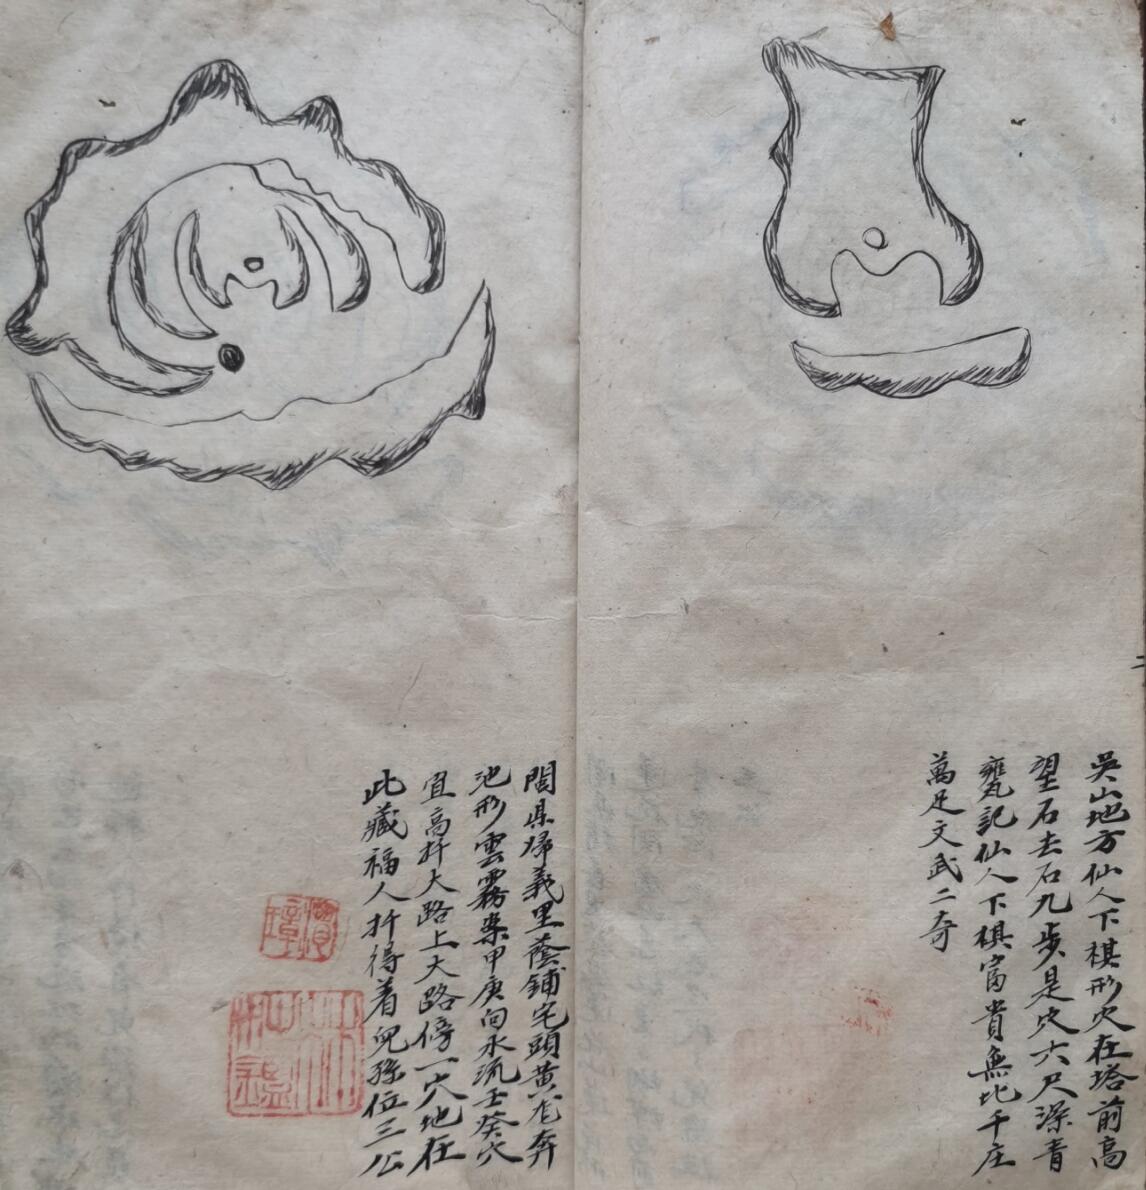 吳山地方仙人下棋形穴在塔前高
望石去石九步是穴六尺深青
甕記仙人下棋富貴無比千庄
萬足文武二奇
閩県歸義里蔭鋪宅頭黃龙奔
池形雲霧案甲庚向水流壬癸穴
宜高扦大路上大路傍一穴地在
此藏福人扦得着兒孫位三公